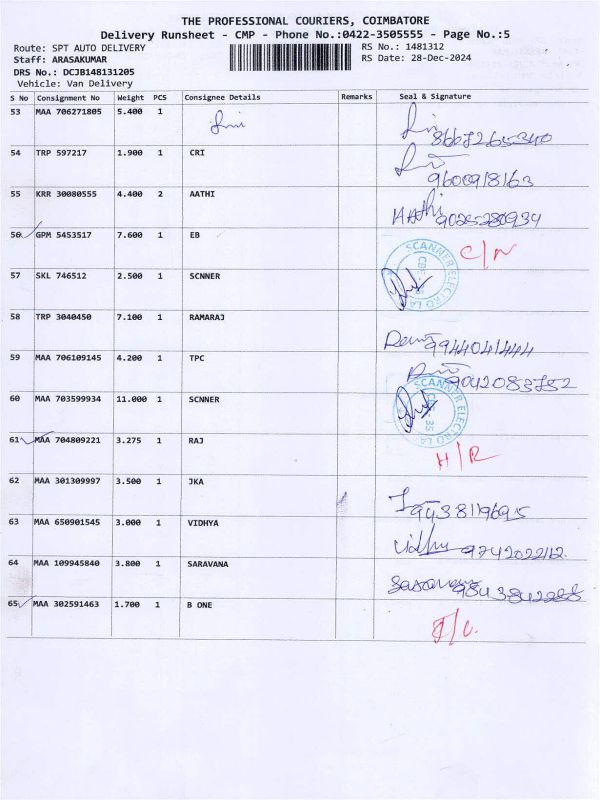 THE PROFESSIONAL COURIERS, COIMBATORE
Delivery Runsheet - CMP - Phone No.:0422-3505555 - Page No.:5
Route: SPT AUTO DELIVERY RS No.: 1481312
Staff: ARASAKUMAR RS Date: 28-Dec-2024
DRS No.: DCJB148131205
Vehicle: Van Delivery
S No Consignment No Weight PCS Consignee Details Remarks Seal & Signature
53 MAA 706271805 5.400 1
54 TRP 597217 1.900 1 CRI
9600918163
55 KRR 30080555 4.400 2 AATHI
9025280934
56 GPM 5453517 7.600 1 EB C/N
57 SKL 746512 2.500 1 SCNNER SCANNER ELECTRO
58 TRP 3040450 7.100 1 RAMARAJ
9944041444
59 MAA 706109145 4.200 1 TPC
9042083752
60 MAA 703599934 11.000 1 SCNNER SCANNER ELECTRO
61 MAA 704809221 3.275 1 RAJ H/R
62 MAA 301309997 3.500 1 JKA
63 MAA 650901545 3.000 1 VIDHYA
Vidhy 9742022112
64 MAA 109945840 3.800 1 SARAVANA
65 MAA 302591463 1.700 1 B ONE